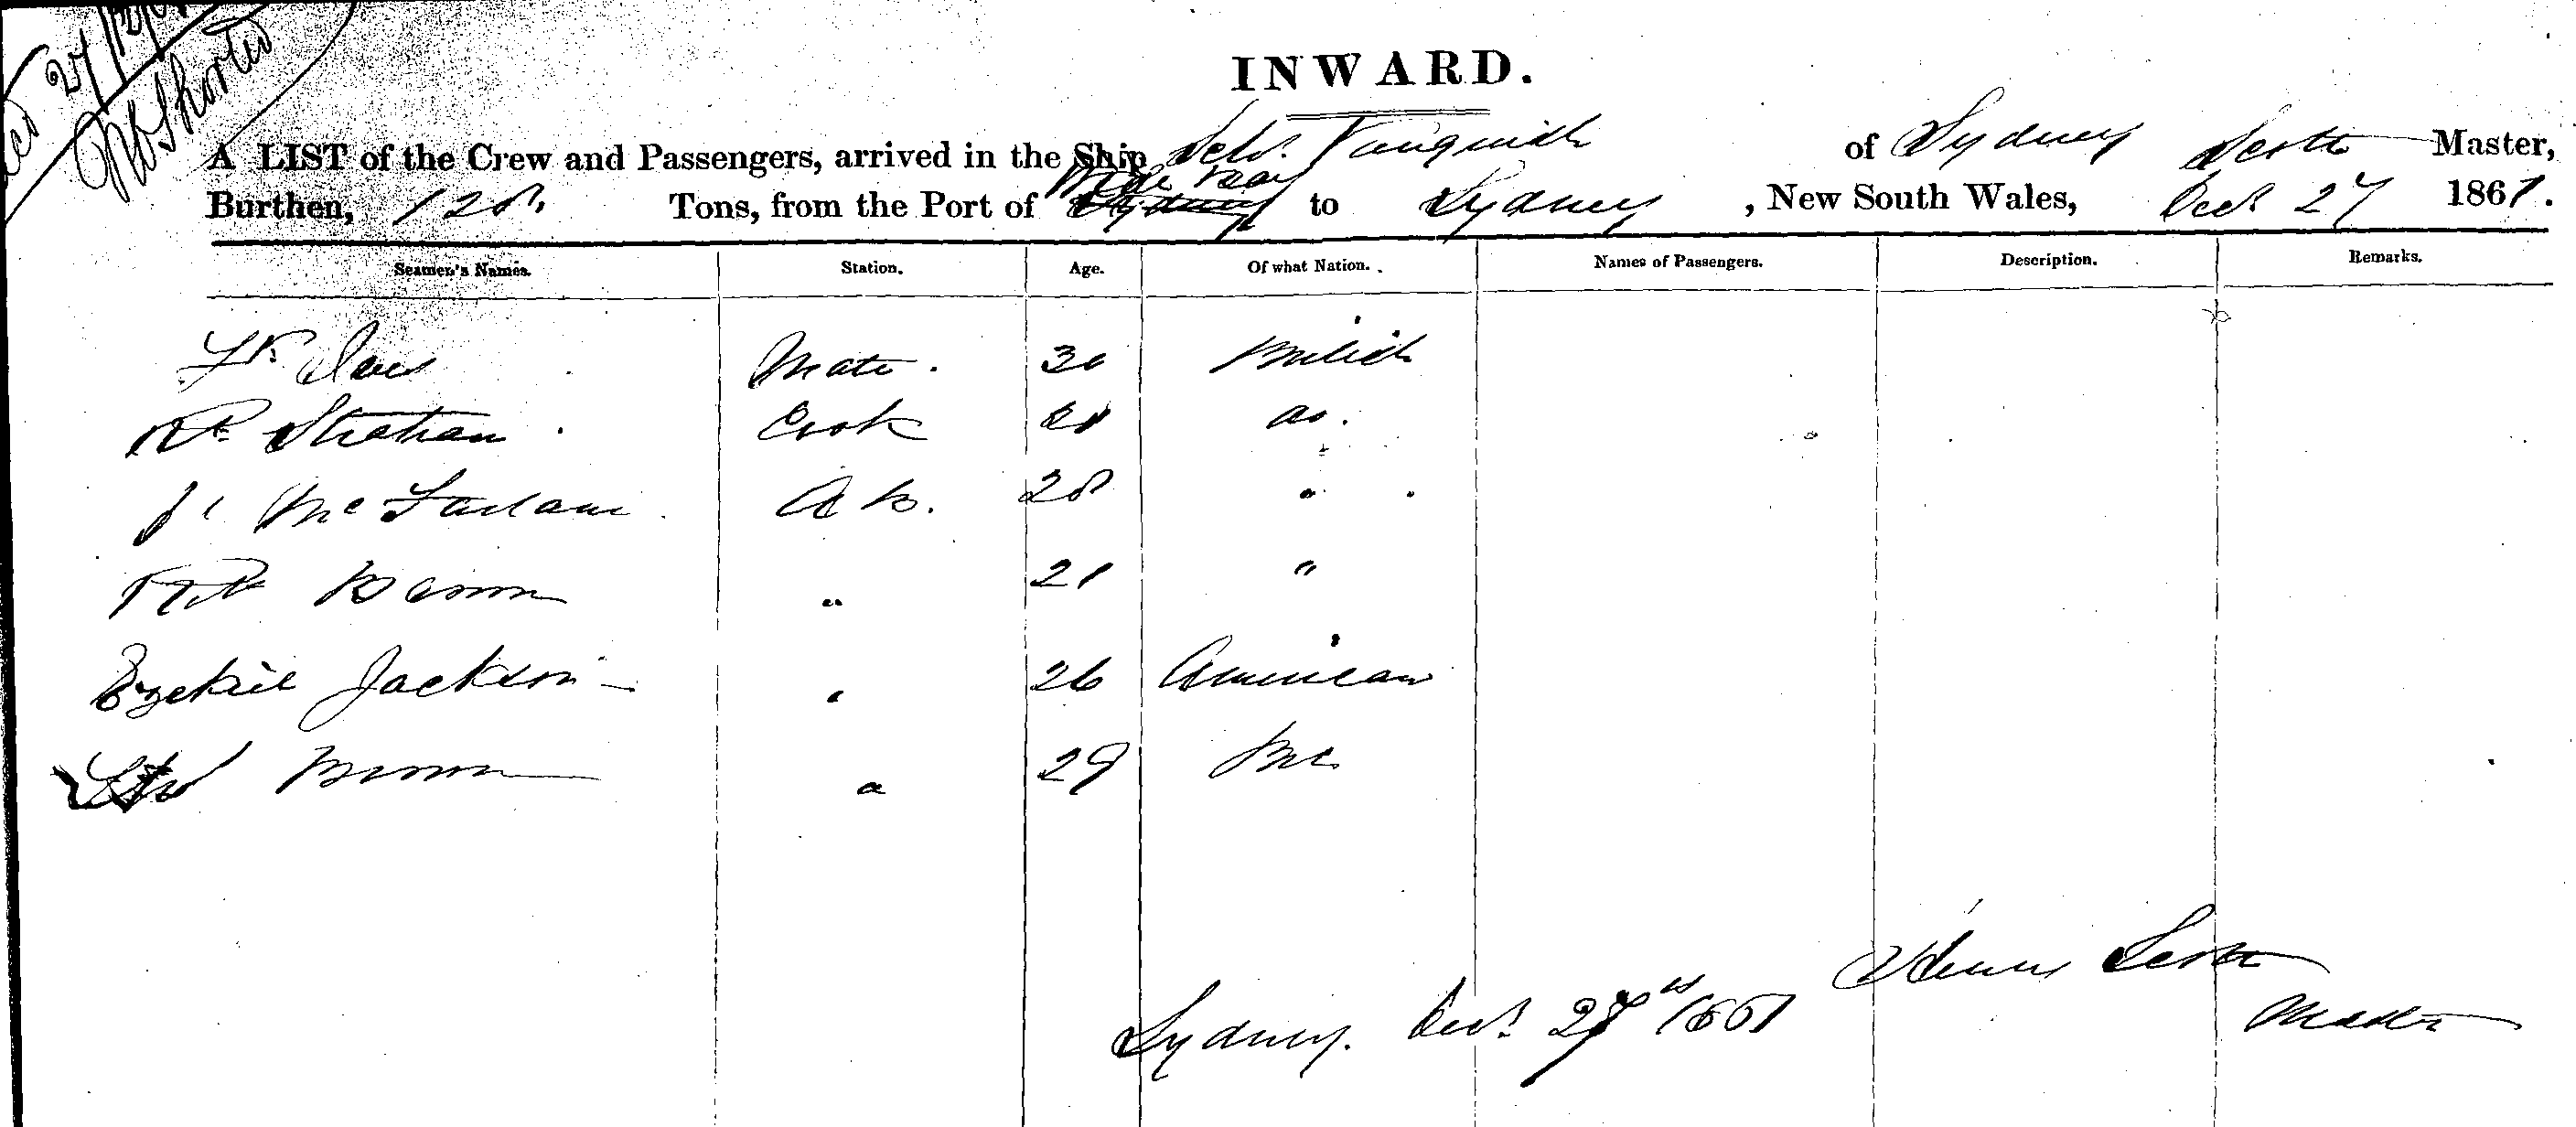 27
INWARD.
A LIST of the Crew and Passengers, arrived in the Ship Schr. Vanquish of Sydney Scott Master,
Wide Bay
Burthen, 128. Tons, from the Port of Sydney to Sydney, New South Wales, Decr 27 1861.
Seamen's Names. Station. Age. Of what Nation. Names of Passengers. Description. Remarks.
Mate. 30 British
Strahan. Cook do.
McFarlane. A B. 28 "
Brown " 21 "
Ezekiel Jackson " 26 American
Brown " 29
Henry Scott
Sydney. Decr 27th 1861 Master